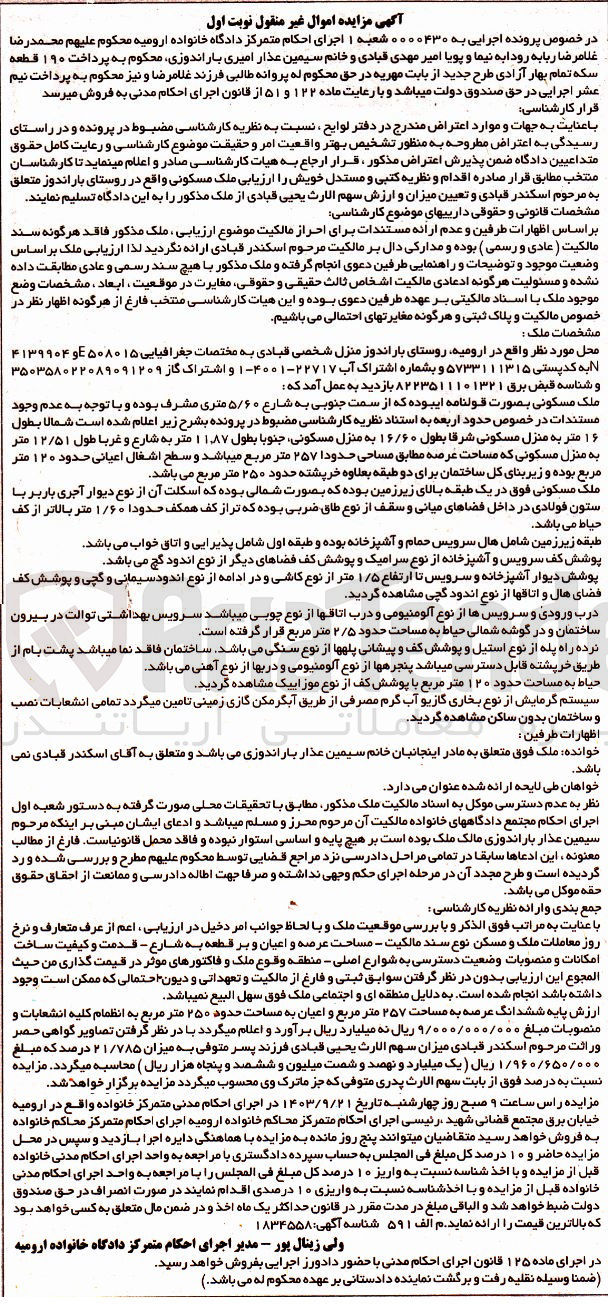 آگهی مزایده اموال غیر منقول نوبت اول
در خصوص پرونده اجرایی به ۰۰۰۰۴۳۰ شعبه ۱ اجرای احکام متمرکز دادگاه خانواده ارومیه محکوم علیهم محمدرضا
غلامرضا ربابه رودابه نیما و پویا امیر مهدی قبادی و خانم سیمین عذار امیری باراندوزی، محکوم به پرداخت ۱۹۰ قطعه
سکه تمام بهار آزادی طرح جدید از بابت مهریه در حق محکوم له پروانه طالبی فرزند غلامرضا و نیز محکوم به پرداخت نیم
عشر اجرایی در حق صندوق دولت میباشد و با رعایت ماده ۱۲۲ و ۵۱ از قانون اجرای احکام مدنی به فروش میرسد
قرار کارشناسی:
باعنایت به جهات و موارد اعتراض مندرج در دفتر لوایح ، نسبت به نظریه کارشناسی مضبوط در پرونده و در راستای
رسیدگی به اعتراض مطروحه به منظور تشخیص بهتر واقعیت امر و حقیقت موضوع کارشناسی و رعایت کامل حقوق
متداعیین دادگاه ضمن پذیرش اعتراض مذکور ، قرار ارجاع به هیات کارشناسی صادر و اعلام مینماید تا کارشناسان
منتخب مطابق قرار صادره اقدام و نظریه کتبی و مستدل خویش را ارزیابی ملک مسکونی واقع در روستای باراندوز متعلق
به مرحوم اسکندر قبادی و تعیین میزان و ارزش سهم الارث یحیی قبادی از ملک مذکور را به این دادگاه تسلیم نمایند.
مشخصات قانونی و حقوقی داراییهای موضوع کارشناسی:
بر اساس اظهارات طرفین و عدم ارائه مستندات برای احراز مالکیت موضوع ارزیابی ، ملک مذکور فاقد هرگونه سند
مالکیت ( عادی و رسمی ) بوده و مدارکی دال بر مالکیت مرحوم اسکندر قبادی ارائه نگردید لذا ارزیابی ملک بر اساس
وضعیت موجود و توضیحات و راهنمایی طرفین دعوی انجام گرفته و ملک مذکور با هیچ سند رسمی و عادی مطابقت داده
نشده و مسئولیت هرگونه ادعادی مالکیت اشخاص ثالث حقیقی و حقوقی، مغایرت در موقعیت ، ابعاد ، مشخصات وضع
موجود ملک با اسناد مالکیتی بر عهده طرفین دعوی بوده و این هیات کارشناسی منتخب فارغ از هرگونه اظهار نظر در
خصوص مالکیت و پلاک ثبتی و هرگونه مغایرتهای احتمالی می باشیم.
مشخصات ملک :
محل مورد نظر واقع در ارومیه، روستای باراندوز منزل شخصی قبادی به مختصات جغرافیایی E۵۰۸۰۱۵ و ۴۱۳۹۹۰۴
N به کدپستی ۵۷۳۳۱۱۱۳۱۵ و بشماره اشتراک آب ۲۲۷۱۷-۴۰۰۱-۱ و اشتراک گاز ۳۵۰۳۵۸۰۲۲۰۸۹۰۹۱۲۰۹
و شناسه قبض برق ۸۲۲۳۵۱۱۱۰۱۳۲۱ بازدید به عمل آمد که :
ملک مسکونی بصورت قولنامه ایبوده که از سمت جنوبی به شارع ۵/۶۰ متری مشرف بوده و با توجه به عدم وجود
مستندات در خصوص حدود اربعه به استناد نظریه کارشناسی مضبوط در پرونده بشرح زیر اعلام شده است شمالا بطول
۱۶ متر به منزل مسکونی شرقا بطول ۱۶/۶۰ به منزل مسکونی، جنوبا بطول ۱۱,۸۷ متر به شارع و غربا طول ۱۲/۵۱ متر
به منزل مسکونی که مساحت عرصه مطابق مساحی حدودا ۲۵۷ متر مربع میباشد و سطح اشغال اعیانی حدود ۱۲۰ متر
مربع بوده و زیربنای کل ساختمان برای دو طبقه بعلاوه خرپشته حدود ۲۵۰ متر مربع می باشد.
ملک مسکونی فوق در یک طبقه بالای زیرزمین بوده که بصورت شمالی بوده که اسکلت آن از نوع دیوار آجری باربر با
ستون فولادی در داخل فضاهای میانی و سقف از نوع طاق ضربی بوده که تراز کف همکف حدودا ۱/۶۰ متر بالاتر از کف
حیاط می باشد.
طبقه زیرزمین شامل هال سرویس حمام و آشپزخانه بوده و طبقه اول شامل پذیرایی و اتاق خواب می باشد.
پوشش کف سرویس و آشپزخانه از نوع سرامیک و پوشش کف فضاهای دیگر از نوع اندود گچ می باشد.
پوشش دیوار آشپزخانه و سرویس تا ارتفاع ۱/۵ متر از نوع کاشی و در ادامه از نوع اندودسیمانی و گچی و پوشش کف
فضای هال و اتاقها از نوع اندود گچی مشاهده گردید.
درب ورودی و سرویس ها از نوع آلومنیومی و درب اتاقها از نوع چوبی میباشد سرویس بهداشتی توالت در بیرون
ساختمان و در گوشه شمالی حیاط به مساحت حدود ۲/۵ متر مربع قرار گرفته است.
نرده راه پله از نوع استیل و پوشش کف و پیشانی پلهها از نوع سنگی می باشد. ساختمان فاقد نما میباشد پشت بام از
طریق خرپشته قابل دسترسی میباشد پنجرهها از نوع آلومنیومی و دربها از نوع آهنی می باشد.
حیاط به مساحت حدود ۱۲۰ متر مربع با پوشش کف از نوع موزاییک مشاهده گردید.
سیستم گرمایش از نوع بخاری گازیو آب گرم مصرفی از طریق آبگرمکن گازی زمینی تامین میگردد تمامی انشعابات نصب
و ساختمان بدون ساکن مشاهده گردید.
اظهارات طرفین :
خوانده: ملک فوق متعلق به مادر اینجانبان خانم سیمین عذار باراندوزی می باشد و متعلق به آقای اسکندر قبادی نمی
باشد.
خواهان طی لایحه ارائه شده عنوان می دارد.
نظر به عدم دسترسی موکل به اسناد مالکیت ملک مذکور، مطابق با تحقیقات محلی صورت گرفته به دستور شعبه اول
اجرای احکام مجتمع دادگاههای خانواده مالکیت آن مرحوم محرز و مسلم میباشد و ادعای ایشان مبنی بر اینکه مرحوم
سیمین عذار باراندوزی مالک ملک بوده است بر هیچ پایه و اساسی استوار نبوده و فاقد محمل قانونیاست. فارغ از مطالب
معنونه ، این ادعاها سابقا در تمامی مراحل دادرسی نزد مراجع قضایی توسط محکوم علیهم مطرح و بررسی شده و رد
گردیده است و طرح مجدد آن در مرحله اجرای حکم وجهی نداشته و صرفا جهت اطاله دادرسی و ممانعت از احقاق حقوق
حقه موکل می باشد.
جمع بندی و ارائه نظریه کارشناسی :
با عنایت به مراتب فوق الذکر و با بررسی موقعیت ملک و با لحاظ جوانب امر دخیل در ارزیابی ، اعم از عرف متعارف و نرخ
روز معاملات ملک و مسکن نوع سند مالکیت - مساحت عرصه و اعیان و بر قطعه به شارع - قدمت و کیفیت ساخت
امکانات و منصوبات وضعیت دسترسی به شوارع اصلی - منطقه وقوع ملک و فاکتورهای موثر در قیمت گذاری من حیث
المجوع این ارزیابی بدون در نظر گرفتن سوابق ثبتی و فارغ از مالکیت و تعهداتی و دیون احتمالی که ممکن است وجود
داشته باشد انجام شده است. به دلایل منطقه ای و اجتماعی ملک فوق سهل البیع نمیباشد.
ارزش پایه ششدانگ عرصه به مساحت ۲۵۷ متر مربع و اعیان به مساحت حدود ۲۵۰ متر مربع به انظمام کلیه انشعابات و
منصوبات مبلغ ۹/۰۰۰/۰۰۰/۰۰۰ ریال نه میلیارد ریال برآورد و اعلام میگردد با در نظر گرفتن تصاویر گواهی حصر
وراثت مرحوم اسکندر قبادی میزان سهم الارث یحیی قبادی فرزند پسر متوفی به میزان ۲۱/۷۸۵ درصد که مبلغ
۱/۹۶۰/۶۵۰/۰۰۰ ریال ( یک میلیارد و نهصد و شصت میلیون و ششصد و پنجاه هزار ریال ) محاسبه میگردد. مزایده
نسبت به درصد فوق از بابت سهم الارث پدری متوفی که جز ماترک وی محسوب میگردد مزایده برگزار خواهد شد.
مزایده راس ساعت ۹ صبح روز چهارشنبه تاریخ ۱۴۰۳/۹/۲۱ در اجرای احکام مدنی متمرکز خانواده واقع در ارومیه
خیابان برق مجتمع قضائی شهید رئیسی اجرای احکام متمرکز محاکم خانواده ارومیه اجرای احکام متمرکز محاکم خانواده
به فروش خواهد رسید متقاضیان میتوانند پنج روز مانده به مزایده با هماهنگی دایره اجرا بازدید و سپس در محل
مزایده حاضر و ۱۰ درصد کل مبلغ فی المجلس به حساب سپرده دادگستری با مراجعه به واحد اجرای احکام مدنی خانواده
قبل از مزایده و با اخذ شناسه نسبت به واریز ۱۰ درصد کل مبلغ فی المجلس را با مراجعه به واحد اجرای احکام مدنی
خانواده قبل از مزایده و با اخذشناسه نسبت به واریزی ۱۰ درصدی اقدام نمایند در صورت انصراف در حق صندوق
دولت ضبط خواهد شد و الباقی مبلغ در مدت مقرر در قانون حداکثر یک ماه اخذ و در ضمن مال متعلق به کسی خواهد بود
که بالاترین قیمت را ارائه نماید.م الف ۵۹۱ شناسه آگهی: ۱۸۳۴۵۵۸
ولی زینال پور - مدیر اجرای احکام متمرکز دادگاه خانواده ارومیه
در اجرای ماده ۱۲۵ قانون اجرای احکام مدنی با حضور دادورز اجرایی بفروش خواهد رسید.
(ضمنا وسیله نقلیه رفت و برگشت نماینده دادستانی بر عهده محکوم له می باشد.)